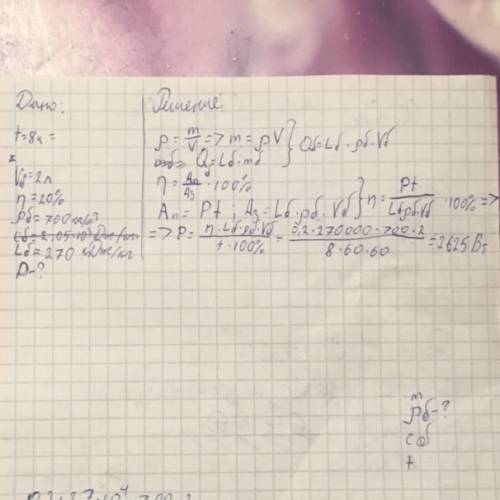 Дано:
t=8ч=
Vб=2л
η=20%
ρб=700 кг/м³
Lб=270 кДж/кг
P-?
Решение:
ρ = m/V => m = ρV } Qб=Lб·ρб·Vб
Q=Lб·mб
η = Aп/Aз · 100%
Aп = Pt ; Aз = Lб·ρб·Vб } η = Pt/Lб·ρб·Vб · 100% =>
=> P = η·Lб·ρб·Vб/t·100% = 0,2·270000·700·2/8·60·60 = 2625 Вт
m
ρб-?
cб
t